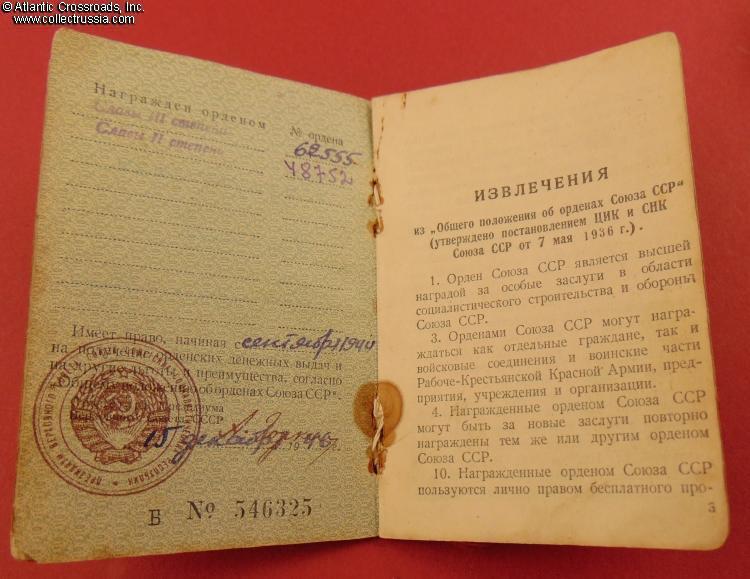 © Atlantic Crossroads, Inc.
www.collectrussia.com
Награжден орденом
№ ордена
Славы III степени
62555
Славы II степень
48752
Имеет право, начиная с сентября 1944
на получение орденских денежных выдач и
на другие льготы и преимущества, согласно
„Общему положению об орденах Союза ССР“.
Президиума
Верховного Совета СССР
15 декабря 1946 г.
Б № 546325
ИЗВЛЕЧЕНИЯ
из „Общего положения об орденах Союза ССР“
(утверждено постановлением ЦИК и СНК
Союза ССР от 7 мая 1936 г.).
1. Орден Союза ССР является высшей
наградой за особые заслуги в области
социалистического строительства и обороны
Союза ССР.
3. Орденами Союза ССР могут награ-
ждаться как отдельные граждане, так и
войсковые соединения и воинские части
Рабоче-Крестьянской Красной Армии, пред-
приятия, учреждения и организации.
4. Награжденные орденом Союза ССР
могут быть за новые заслуги повторно
награждены тем же или другим орденом
Союза ССР.
10. Награжденные орденом Союза ССР
пользуются лично правом бесплатного про-
3